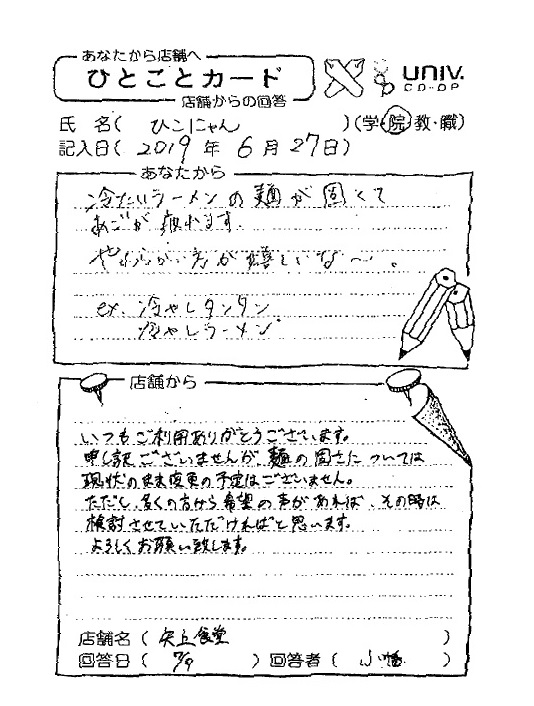 あなたから店舗へ
ひとことカード
店舗からの回答
UNIV.
CO-OP
氏 名( ひこにゃん )(学・院・教・職)
記入日( 2019 年 6 月 27日)
あなたから
冷たいラーメンの麺が固くて
あごが疲れます。
やわらかい方が嬉しいな〜。
ex. 冷やしタンタン
冷やしラーメン
店舗から
いつもご利用ありがとうございます。
申し訳ございませんが、麺の固さについては
現状のまま変更の予定はございません。
ただし、多くの方から希望の声があれば、その時は
検討させていただければと思います。
よろしくお願い致します。
店舗名( 矢上食堂 )
回答日( 7/9 )回答者( 小幡 )